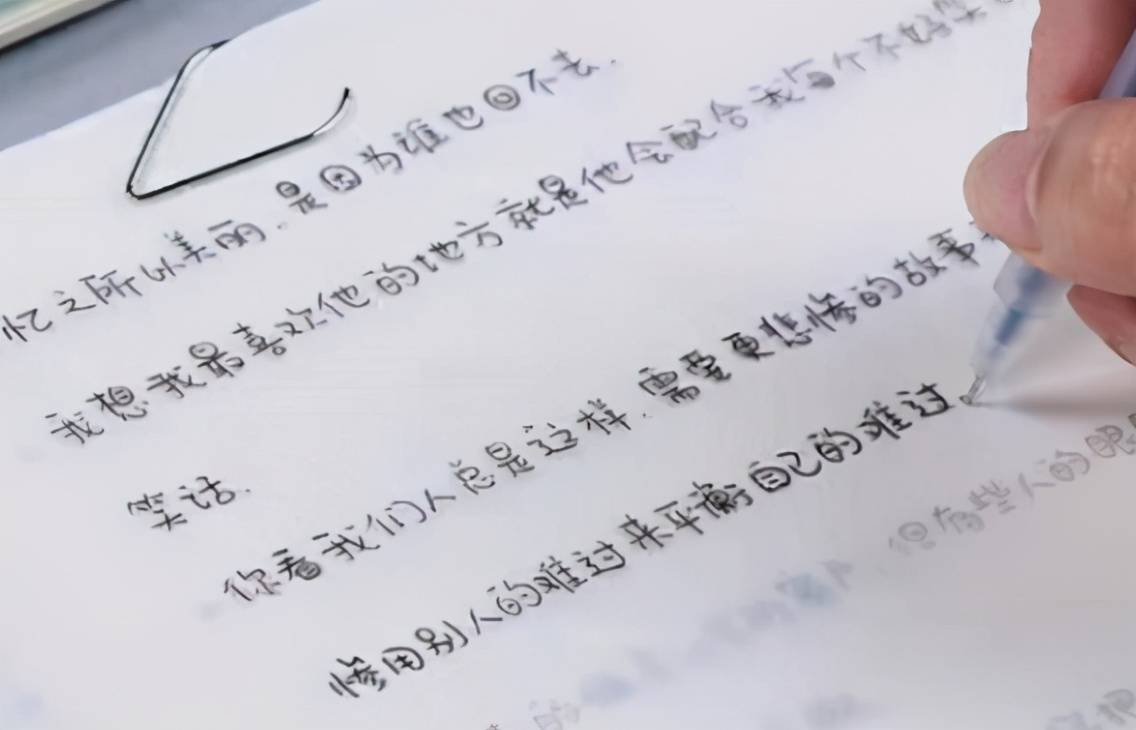 忆之所以美丽.是因为谁也回不去.
我想我最喜欢他的地方就是他会配合我每个不好笑
笑话.
你看我们人总是这样.需要更悲惨的故事
惨用别人的难过来平衡自己的难过.
但有些人的眼
的